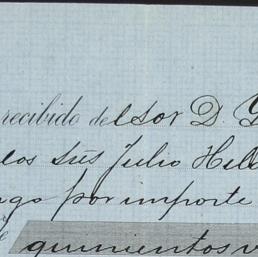 recibido del Sor D. G
los Srés Julio Hil
ngo por importe
quinientos v